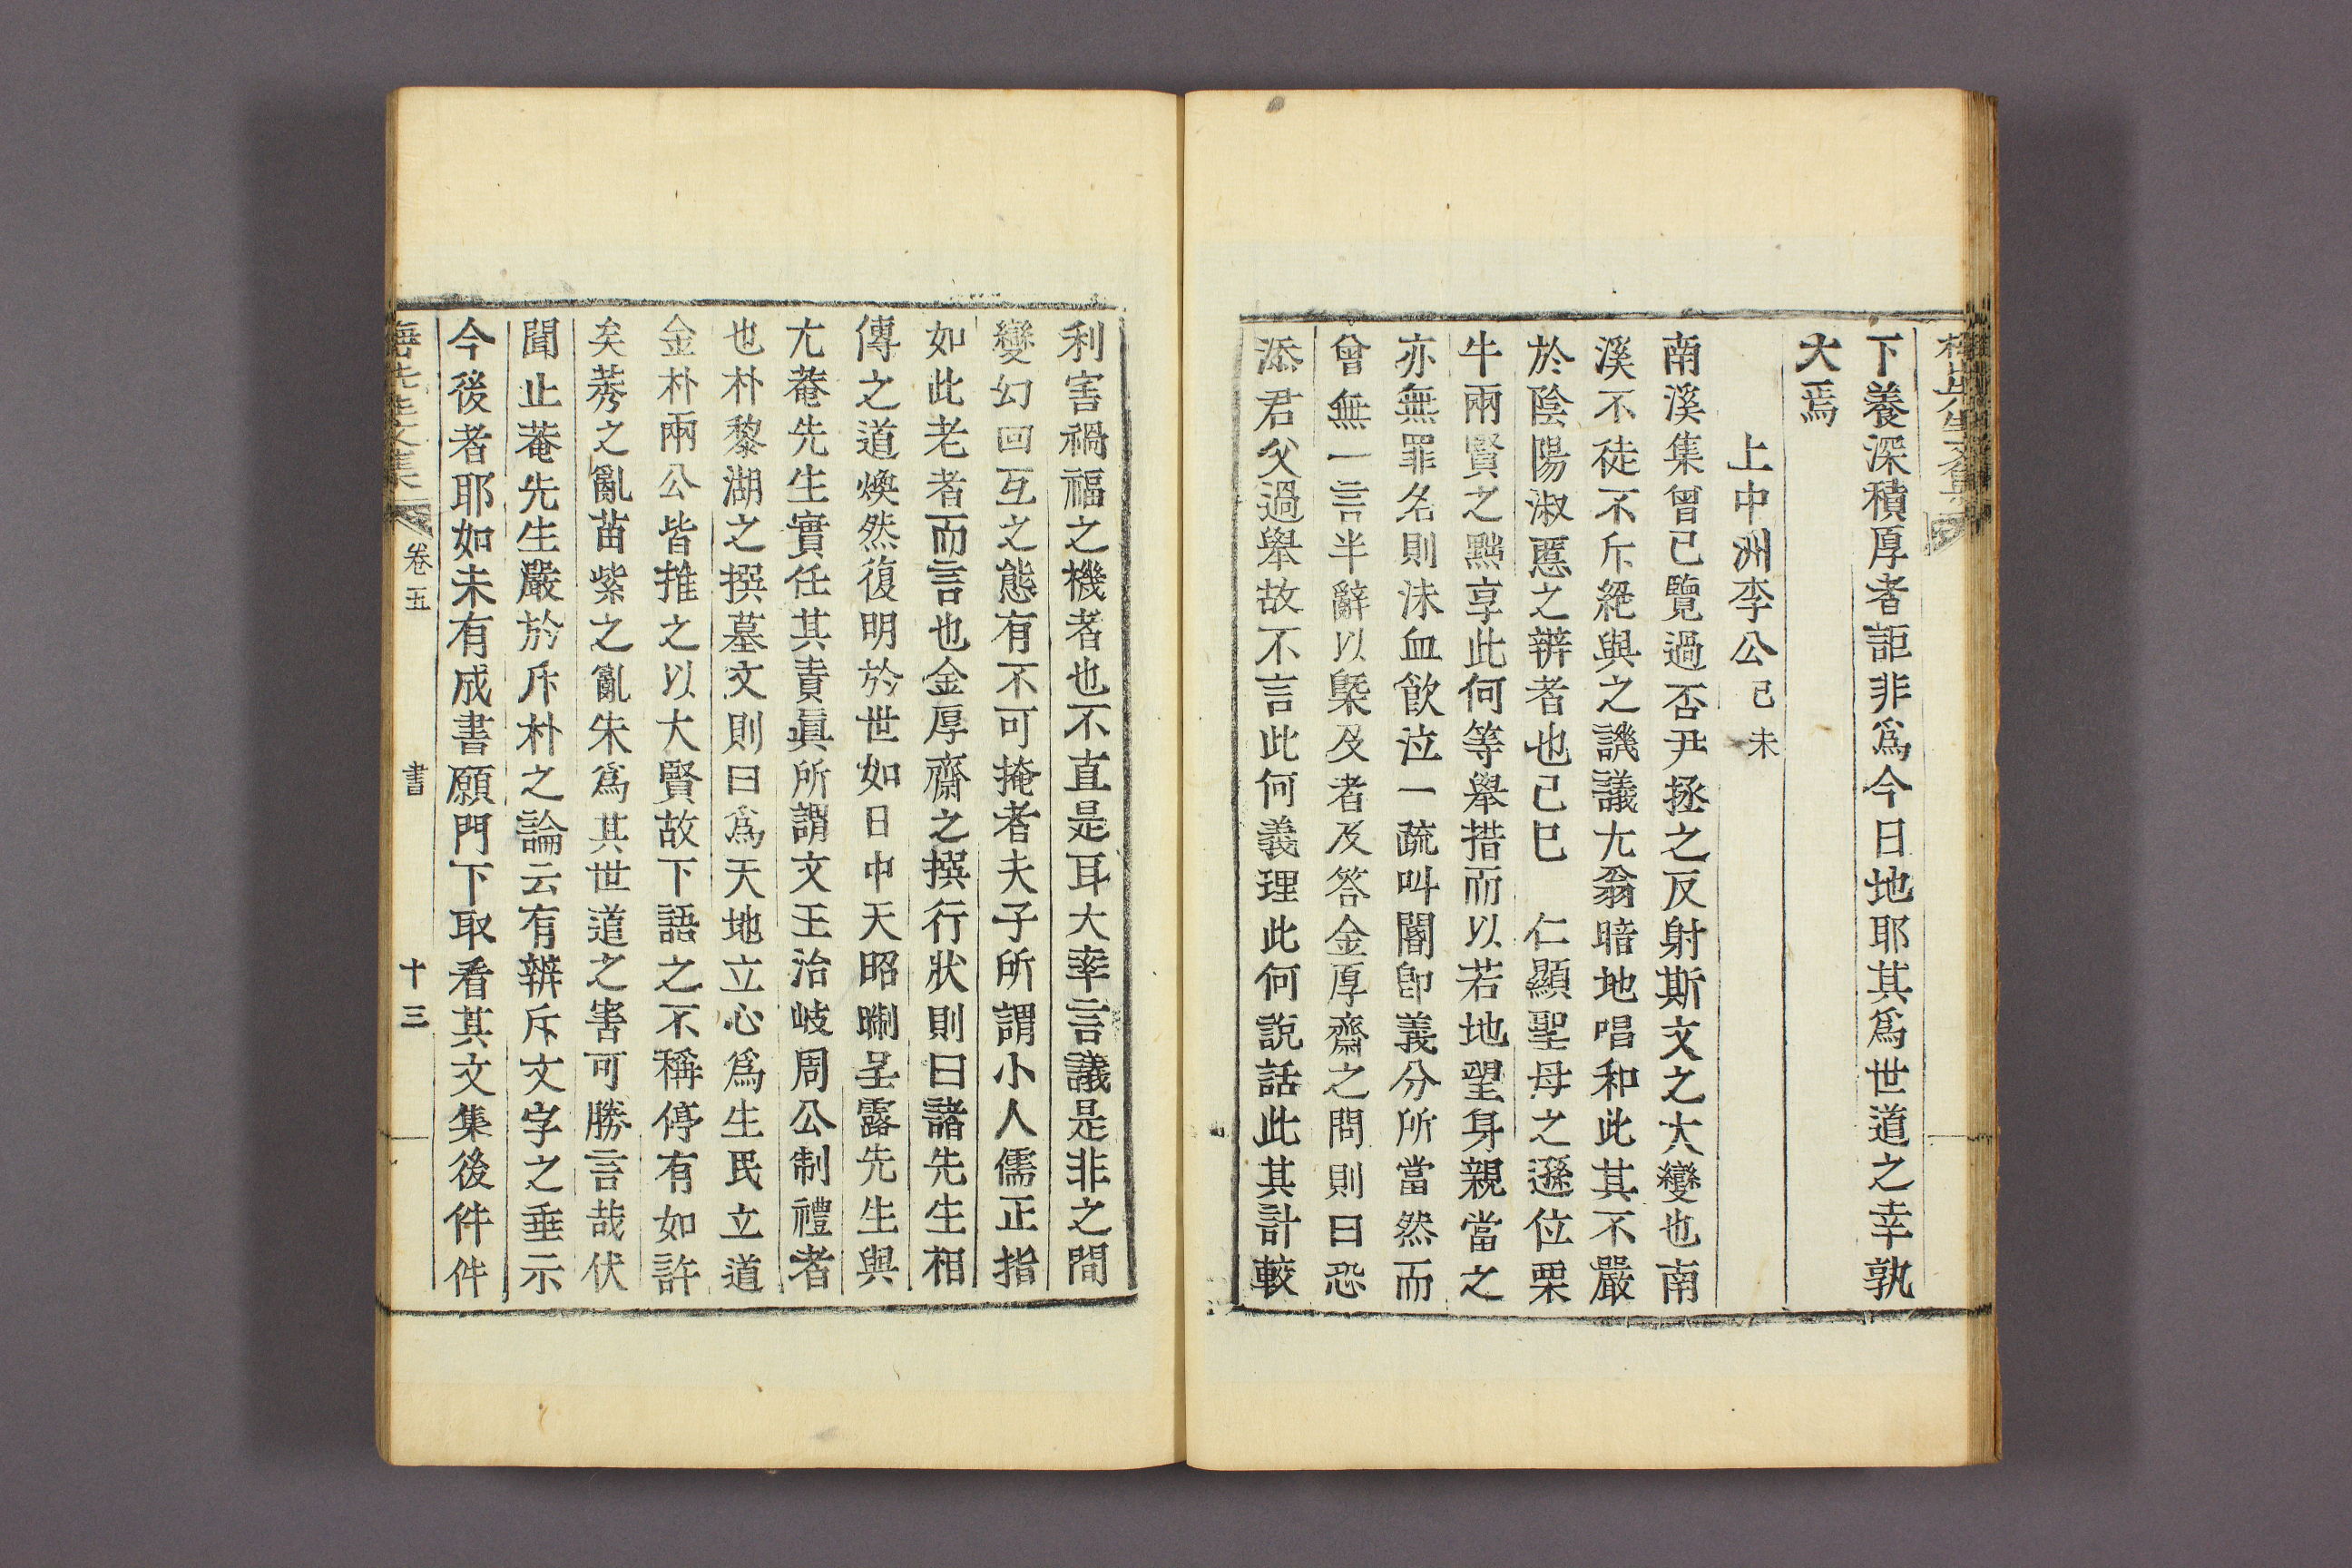 下養深積厚者詎非爲今日地耶其爲世道之幸孰
大焉
上中洲李公己未
南溪集曾已覽過否尹拯之反射斯文之大變也南
溪不徒不斥絕與之譏議尤翁暗地唱和此其不嚴
於陰陽淑慝之辨者也己巳 仁顯聖母之遜位栗
牛兩賢之黜享此何等擧措而以若地望身親當之
亦無罪名則沬血飮泣一疏叫閽卽義分所當然而
曾無一言半辭以槩及者及答金厚齋之問則曰恐
添君父過擧故不言此何義理此何說話此其計較
利害禍福之機者也不直是耳大率言議是非之間
變幻回互之態有不可掩者夫子所謂小人儒正指
如此老者而言也金厚齋之撰行狀則曰諸先生相
傳之道煥然復明於世如日中天昭晣呈露先生與
尤菴先生實任其責眞所謂文王治岐周公制禮者
也朴黎湖之撰墓文則曰爲天地立心爲生民立道
金朴兩公皆推之以大賢故下語之不稱停有如許
矣莠之亂苗紫之亂朱爲其世道之害可勝言哉伏
聞止菴先生嚴於斥朴之論云有辨斥文字之垂示
今後者耶如未有成書願門下取看其文集後件件
先生文集 卷五 書 十三